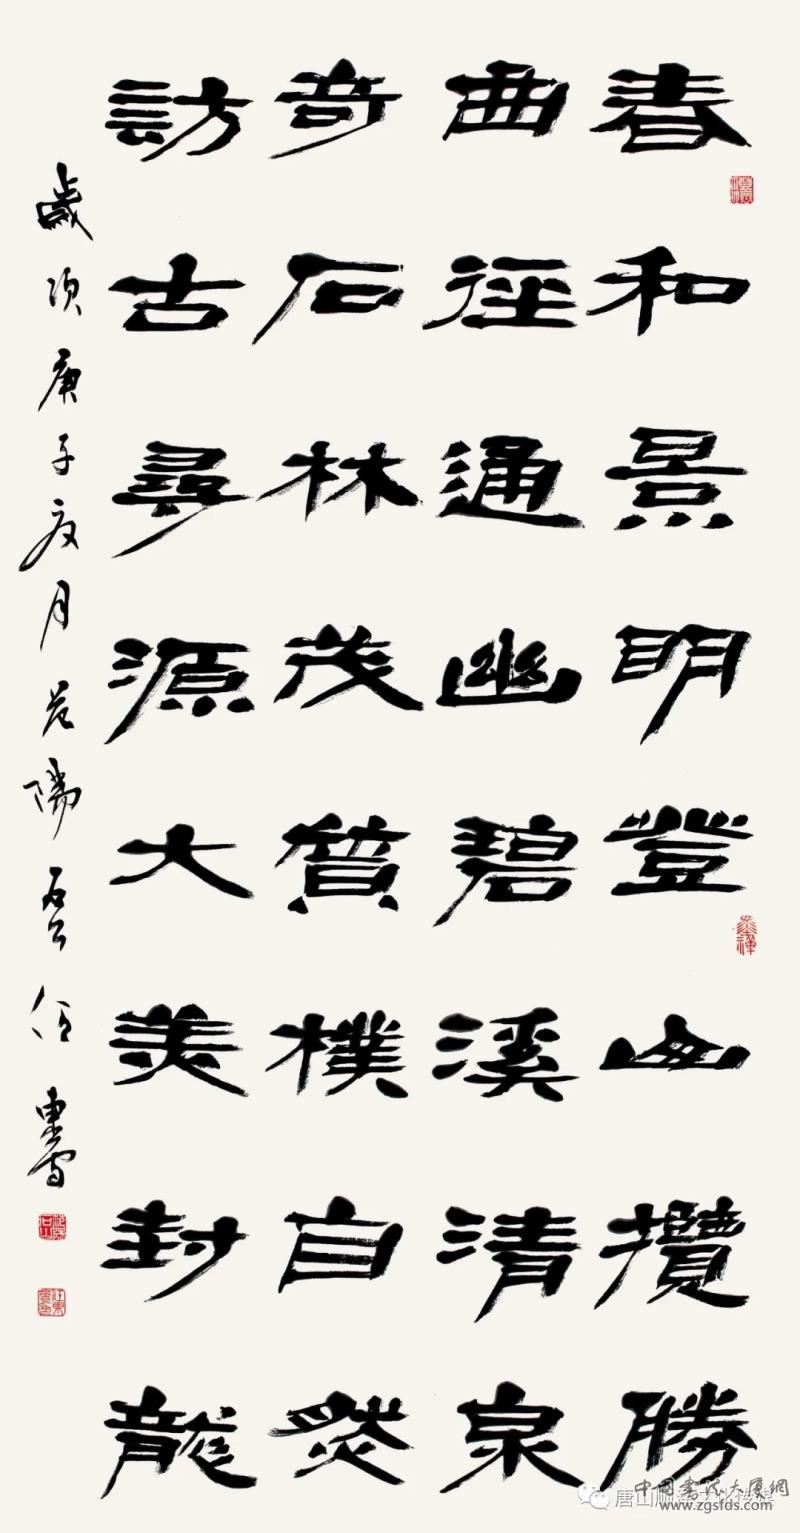 春和景明登山攬勝
曲徑通幽碧溪清泉
奇石林茂質樸自然
訪古尋源大美封龍
歲次庚子夏月
中国书法大厦網
www.zgsfds.com
唐山